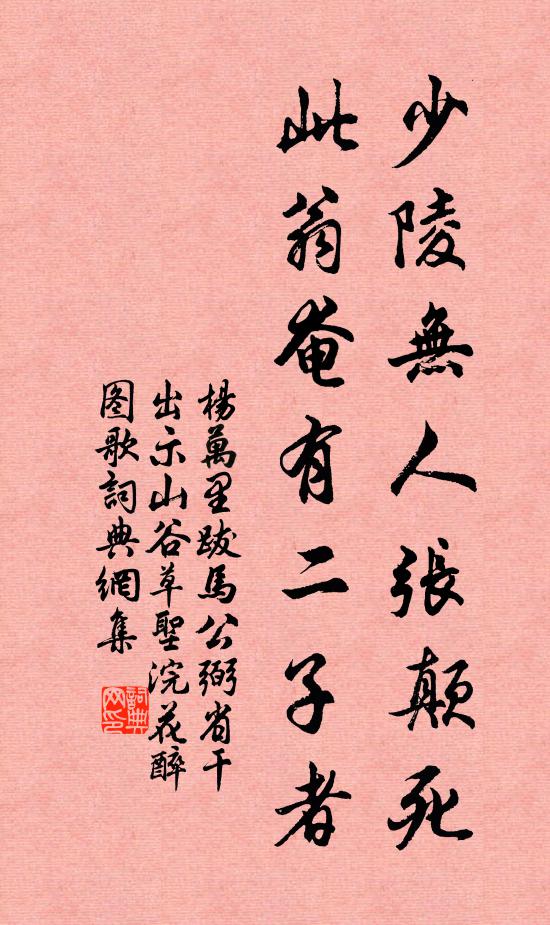 少陵無人張顛死
此翁奄有二子者
楊萬里跋馬公弼省干
出示山谷草聖浣花醉
图歌詞典網集
詞典
网印